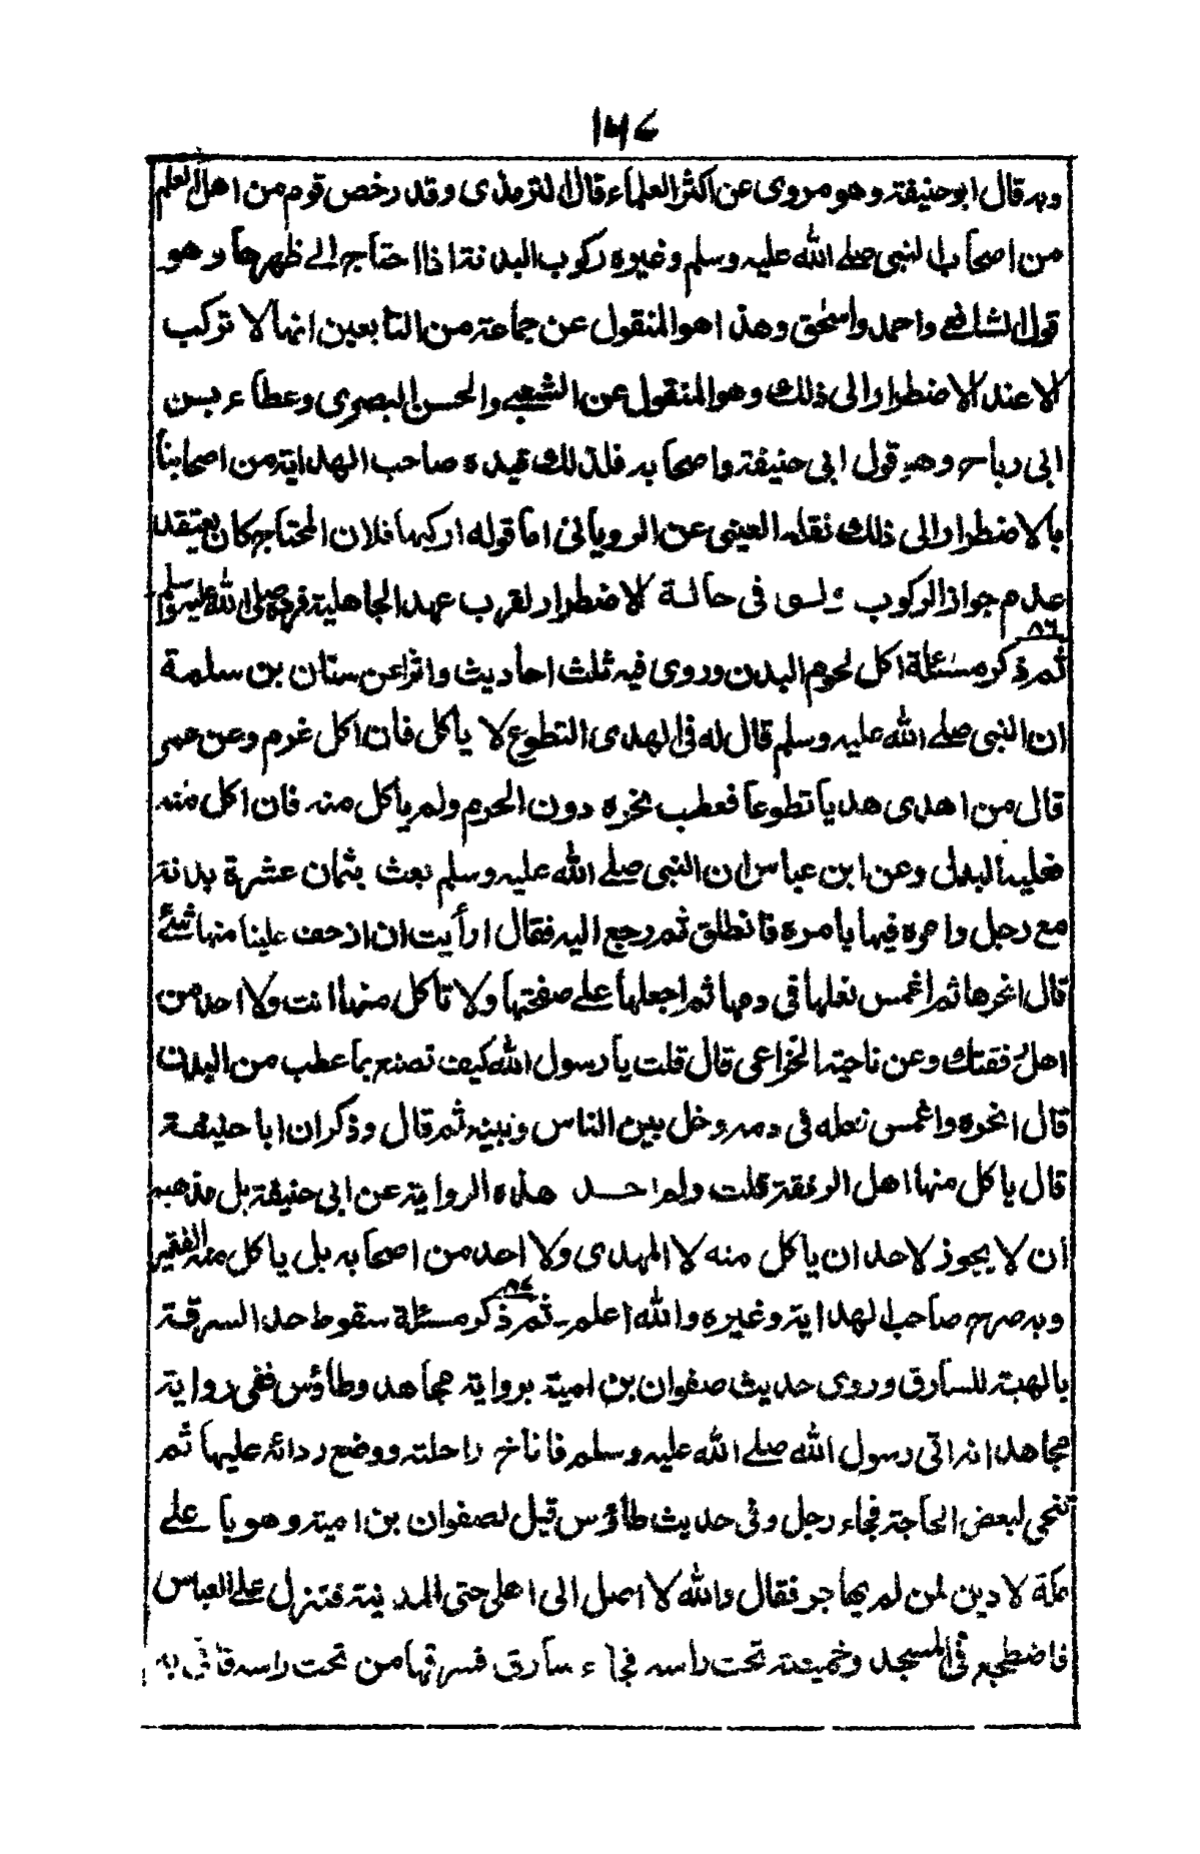 ١٦٧
وبه قال ابو حنيفة وهو مروى عن اكثر العلماء قال الترمذى وقد رخص قوم من اهل العلم
من اصحاب النبى صلى الله عليه وسلم وغيره ركوب البدنة اذا احتاج الى ظهرها وهو
قول الشافعى واحمد واسحٰق وهذا هو المنقول عن جماعة من التابعين انها لا تركب
الا عند الاضطرار الى ذلك وهو المنقول عن الشعبى والحسن البصرى وعطاء بن
ابى رباح وهو قول ابى حنيفة واصحابه فلذلك قيده صاحب الهداية من اصحابنا
بالاضطرار الى ذلك نقله العينى عن الرويانى اما قوله اركبها فلان المحتاج كان يعتقد
عدم جواز الركوب فى حالة الاضطرار لقرب عهد الجاهلية فرده صلى الله عليه وسلم
٨٦
ثم ذكر مسئلة اكل لحوم البدن وروى فيه ثلث احاديث واثرا عن سنان بن سلمة
ان النبى صلى الله عليه وسلم قال له فى الهدى التطوع لا ياكل فان اكل غرم وعن عمر
قال من اهدى هديا تطوعا فعطب نحره دون الحرم ولم ياكل منه فان اكل منه
فعليه البدل وعن ابن عباس ان النبى صلى الله عليه وسلم بعث بثمان عشرة بدنة
مع رجل وامره فيها بامره فانطلق ثم رجع اليه فقال ارأيت ان ازحف علينا منها شئ
قال انحرها ثم اغمس نعلها فى دمها ثم اجعلها على صفحتها ولا تاكل منها انت ولا احد من
اهل رفقتك وعن ناجية الخزاعى قال قلت يا رسول الله كيف تصنع بما عطب من البدن
قال انحره واغمس نعله فى دمه وخل بين الناس وبينه ثم قال وذكر ان ابا حنيفة
قال ياكل منها اهل الرفقة قلت ولم اجد هذه الرواية عن ابى حنيفة بل مذهبه
ان لا يجوز لاحد ان ياكل منه لا المهدى ولا احد من اصحابه بل ياكل منه الفقير
وبه صرح صاحب الهداية وغيره والله اعلم ـ ثم ذكر مسئلة سقوط حد السرقة
٨٧
بالهبة للسارق وروى حديث صفوان بن امية برواية مجاهد وطاؤس ففى رواية
مجاهد انه اتى رسول الله صلى الله عليه وسلم فاناخ راحلته ووضع ردائه عليها ثم
تنحى لبعض الحاجة فجاء رجل وفى حديث طاؤس قيل لصفوان بن امية وهو با على
مكة لا دين لمن لم يهاجر فقال والله لا اصل الى اهلى حتى المدينة فتنزل على العباس
فاضطجع فى المسجد وخميصته تحت راسه فجاء سارق فسرقها من تحت راسه فاتى به